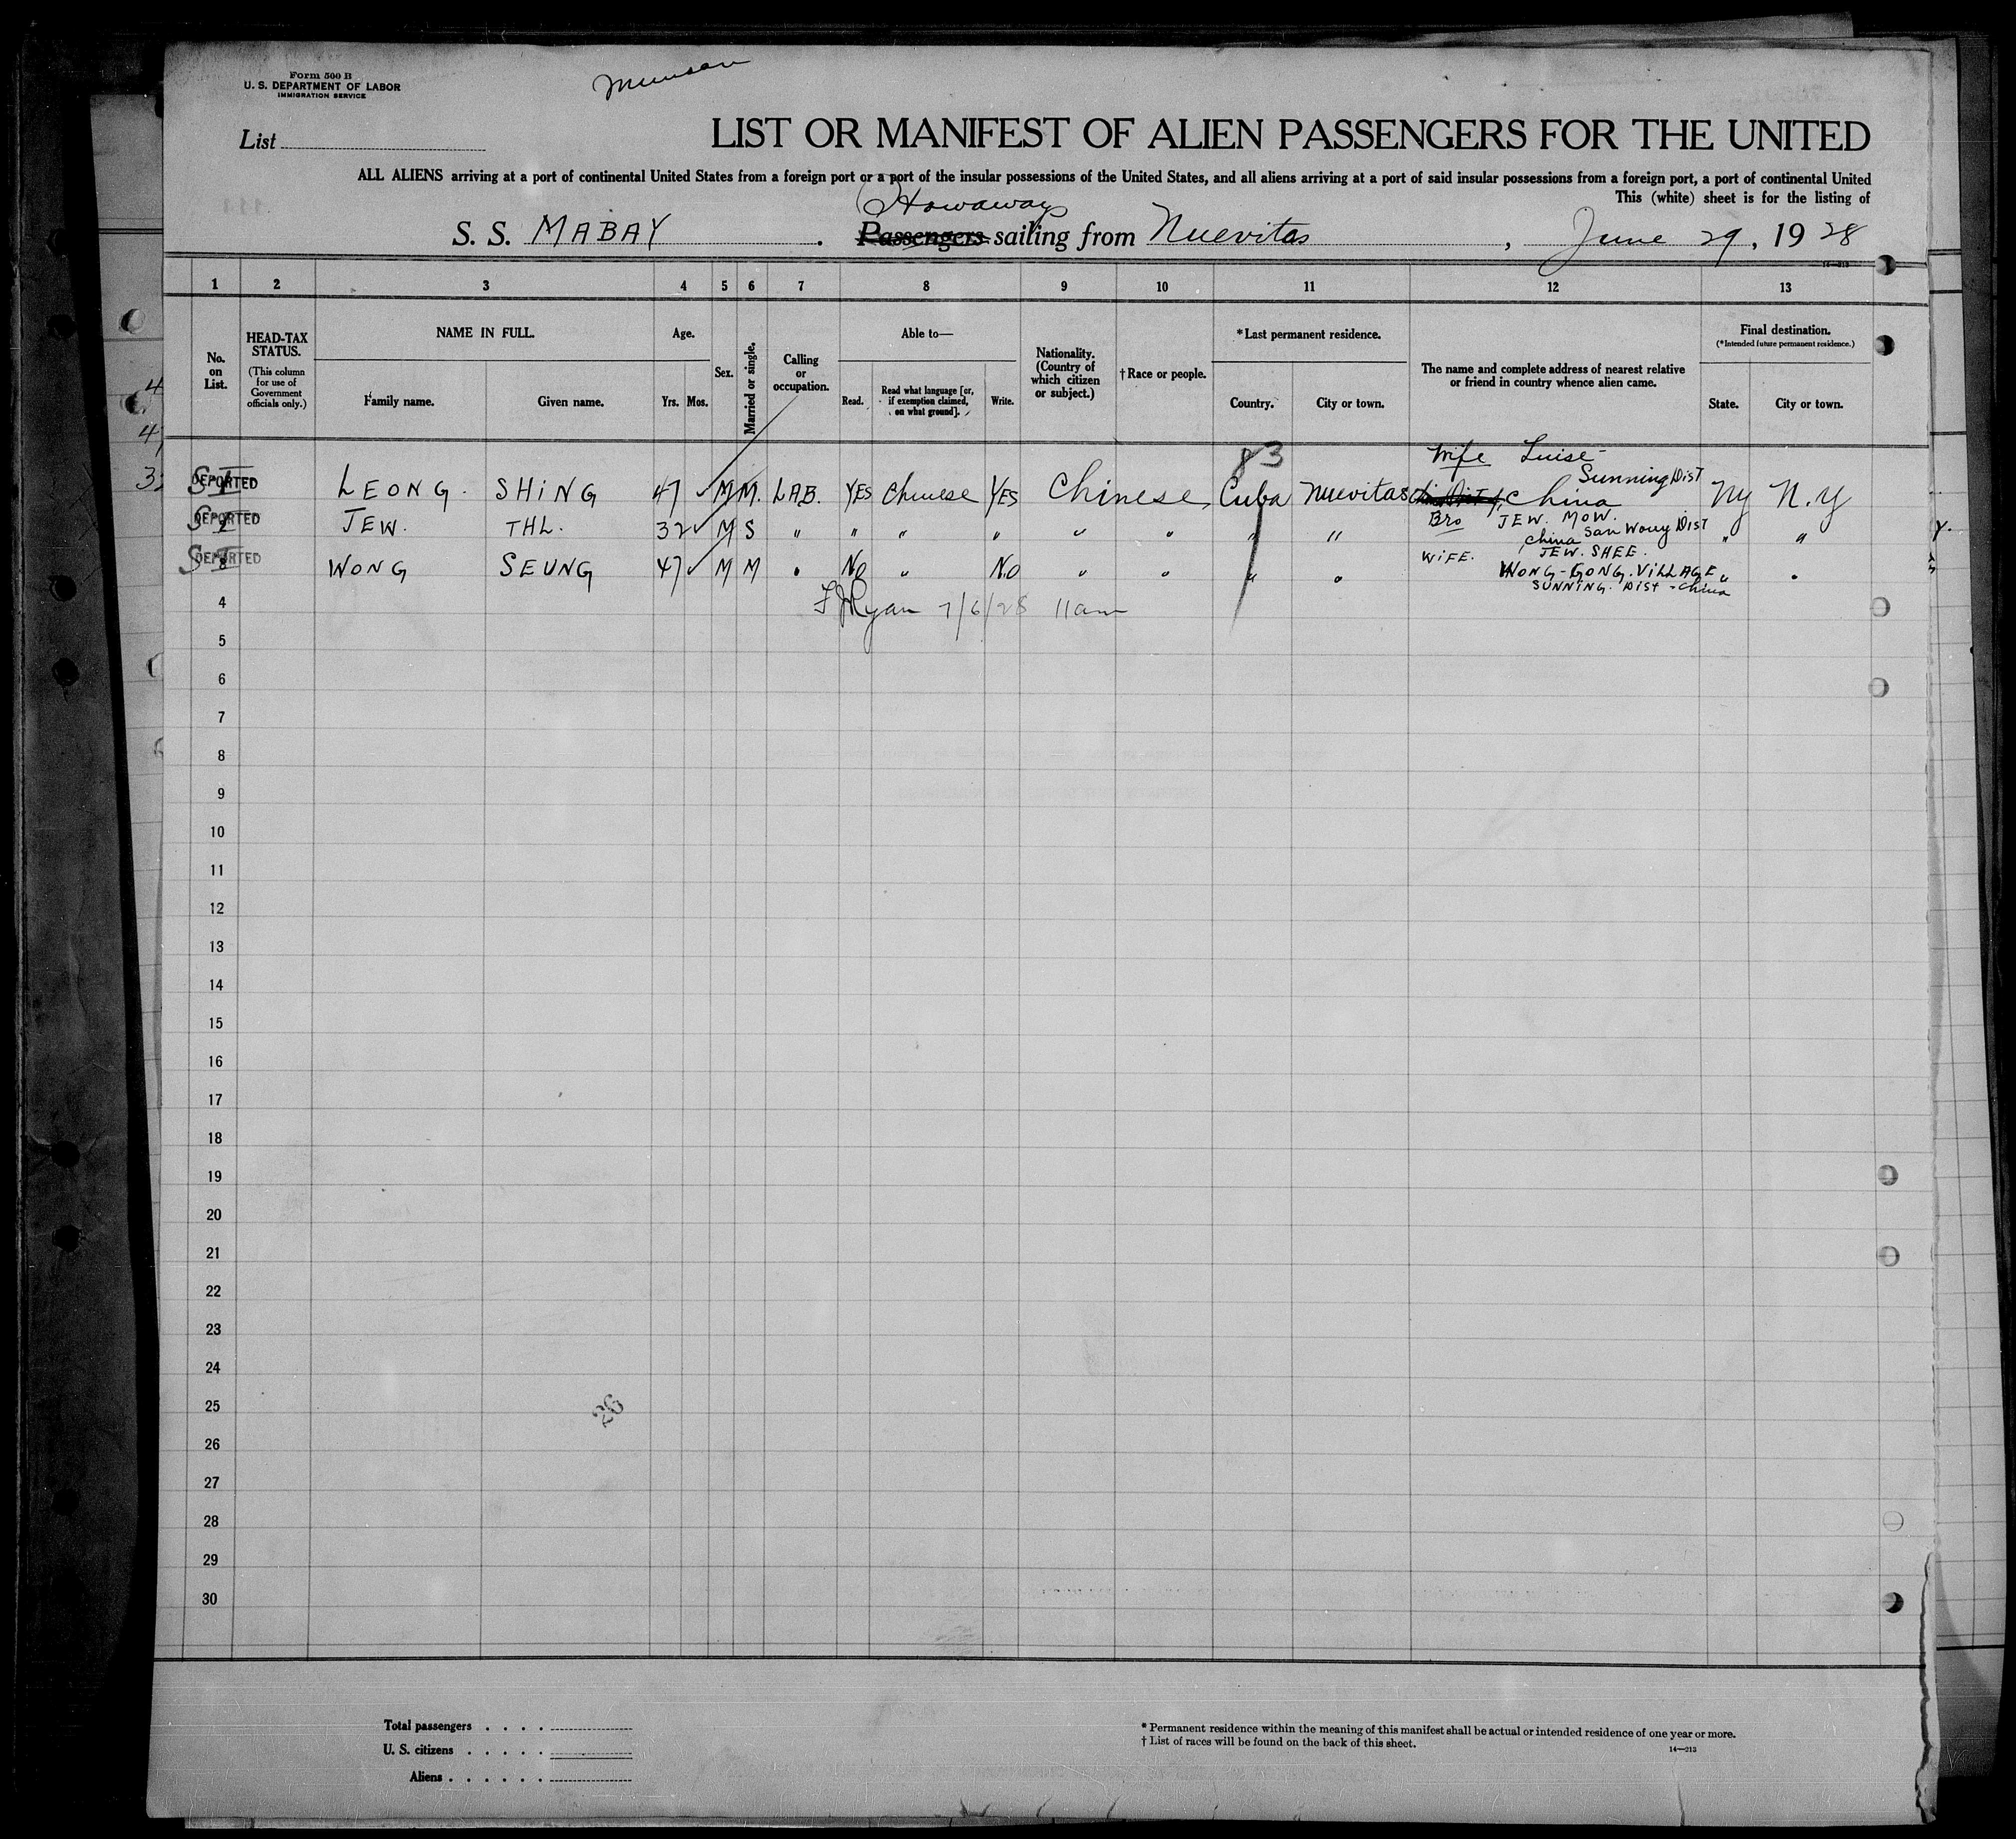 Form 500 B
U. S. DEPARTMENT OF LABOR
IMMIGRATION SERVICE
Munson
List
LIST OR MANIFEST OF ALIEN PASSENGERS FOR THE UNITED
ALL ALIENS arriving at a port of continental United States from a foreign port or a port of the insular possessions of the United States, and all aliens arriving at a port of said insular possessions from a foreign port, a port of continental United
This (white) sheet is for the listing of
S. S. MABAY . Passengers sailing from Nuevitas , June 29, 1928
14—213
1 2 3 4 5 6 7 8 9 10 11 12 13
No. on List.
HEAD-TAX STATUS.
(This column for use of Government officials only.)
NAME IN FULL.
Family name. Given name.
Age.
Yrs. Mos.
Sex.
Married or single.
Calling or occupation.
Able to—
Read. Read what language [or, if exemption claimed, on what ground]. Write.
Nationality. (Country of which citizen or subject.)
†Race or people.
*Last permanent residence.
Country. City or town.
The name and complete address of nearest relative or friend in country whence alien came.
Final destination.
(*Intended future permanent residence.)
State. City or town.
83
Wife Luise
Sunning Dist
DEPORTED LEONG. SHING 47 M M. LAB. YES Chinese YES Chinese Cuba Nuevitas China NY N.Y
DEPORTED JEW. THL. 32 M S " " " " " " " " Bro JEW. MOW. " "
China San Wouy Dist
DEPORTED WONG SEUNG 47 M M " No " No " " " " WIFE. JEW. SHEE. " "
WONG-GONG. VILLAGE
SUNNING. DIST - China
4 FJRyan 7/6/28 11am
5
6
7
8
9
10
11
12
13
14
15
16
17
18
19
20
21
22
23
24
25
26
26
27
28
29
30
Total passengers . . . .
U. S. citizens . . . . .
Aliens . . . . . .
* Permanent residence within the meaning of this manifest shall be actual or intended residence of one year or more.
† List of races will be found on the back of this sheet.
14—213